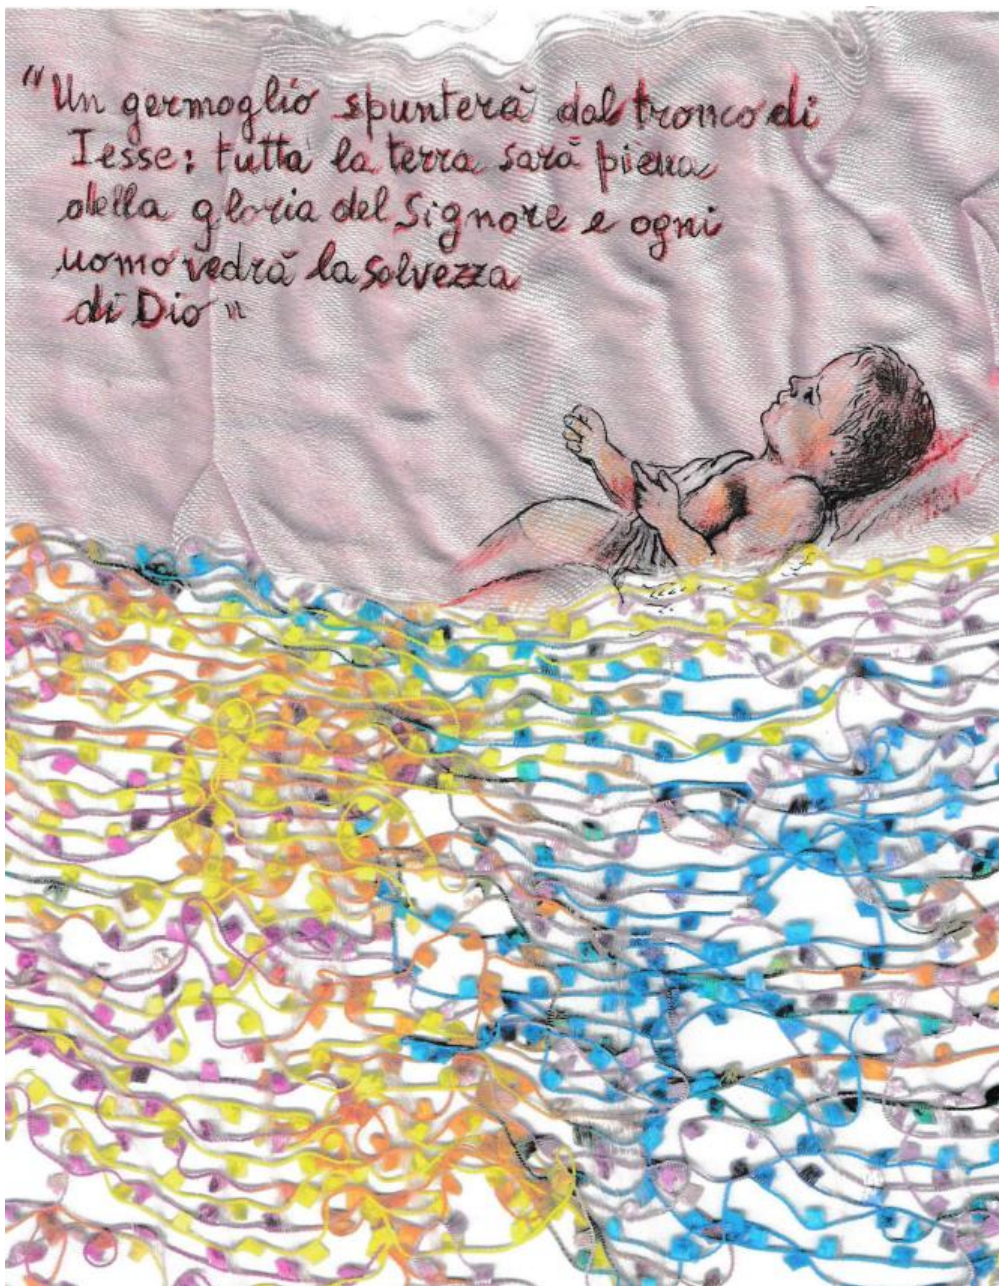 "Un germoglio spunterà dal tronco di
Iesse: tutta la terra sarà piena
della gloria del Signore e ogni
uomo vedrà la salvezza
di Dio"